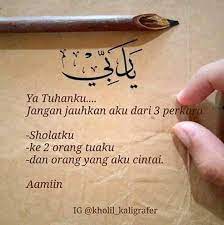 يَا رَبِّي
Ya Tuhanku....
Jangan jauhkan aku dari 3 perkara
-Sholatku
-ke 2 orang tuaku
-dan orang yang aku cintai.
Aamiin
IG @kholil_kaligrafer